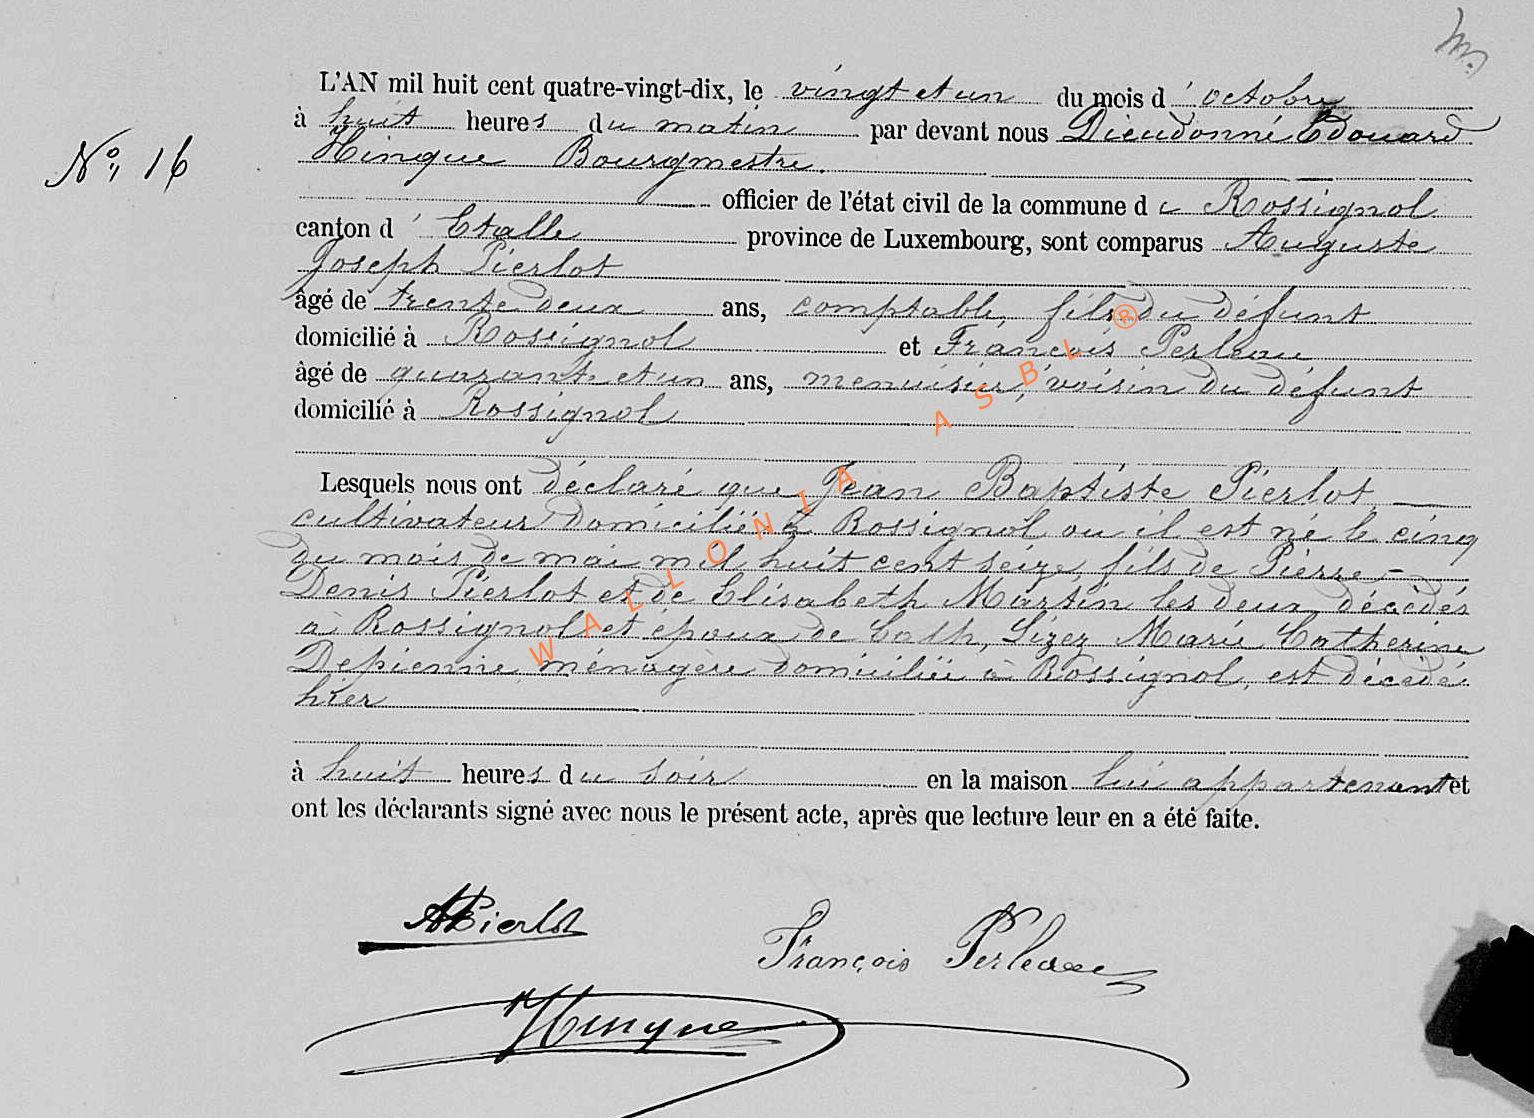 L'AN mil huit cent quatre-vingt-dix, le vingt et un du mois d'octobre
à huit heures du matin par devant nous Dieudonné Edouard
N° 16
Hinque Bourgmestre.
officier de l'état civil de la commune de Rossignol
canton d'Etalle province de Luxembourg, sont comparus Auguste
Joseph Pierlot
âgé de trente deux ans, comptable, fils du défunt
domicilié à Rossignol et François Perleau
âgé de quarante et un ans, menuisier, voisin du défunt
domicilié à Rossignol
Lesquels nous ont déclaré que Jean Baptiste Pierlot
cultivateur domicilié à Rossignol ou il est né le cinq
du mois de mai mil huit cent seize, fils de Pierre
Denis Pierlot et de Elisabeth Martin les deux décédés
à Rossignol et époux de Cath, Lizez Marie Catherine
Depienne, ménagère domiciliée à Rossignol, est décédé
hier
à huit heures du soir en la maison lui appartenant et
ont les déclarants signé avec nous le présent acte, après que lecture leur en a été faite.
APierlot
François Perleau
Hinque
WALLONIA ASBL ®